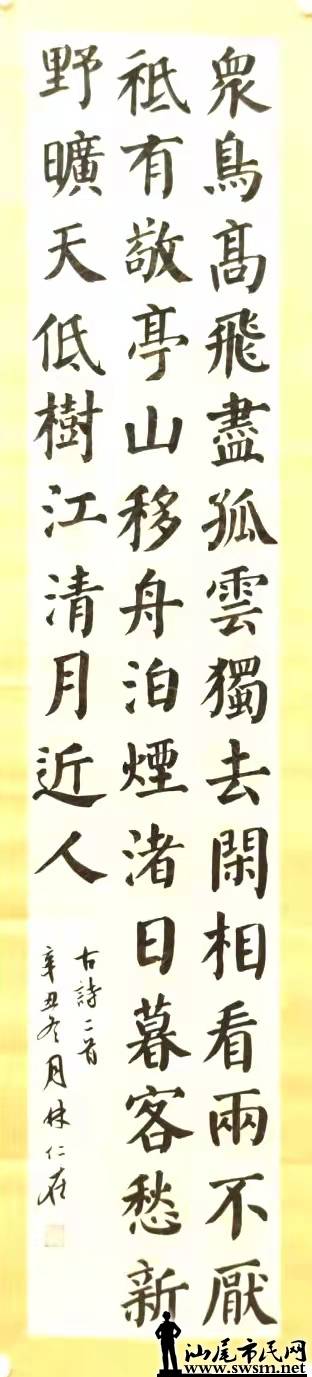 衆鳥髙飛盡孤雲獨去閑相看兩不厭
祗有敬亭山移舟泊煙渚日暮客愁新
野曠天低樹江清月近人
古詩二首
辛丑冬月林仁
汕尾市民网
www.swsm.net